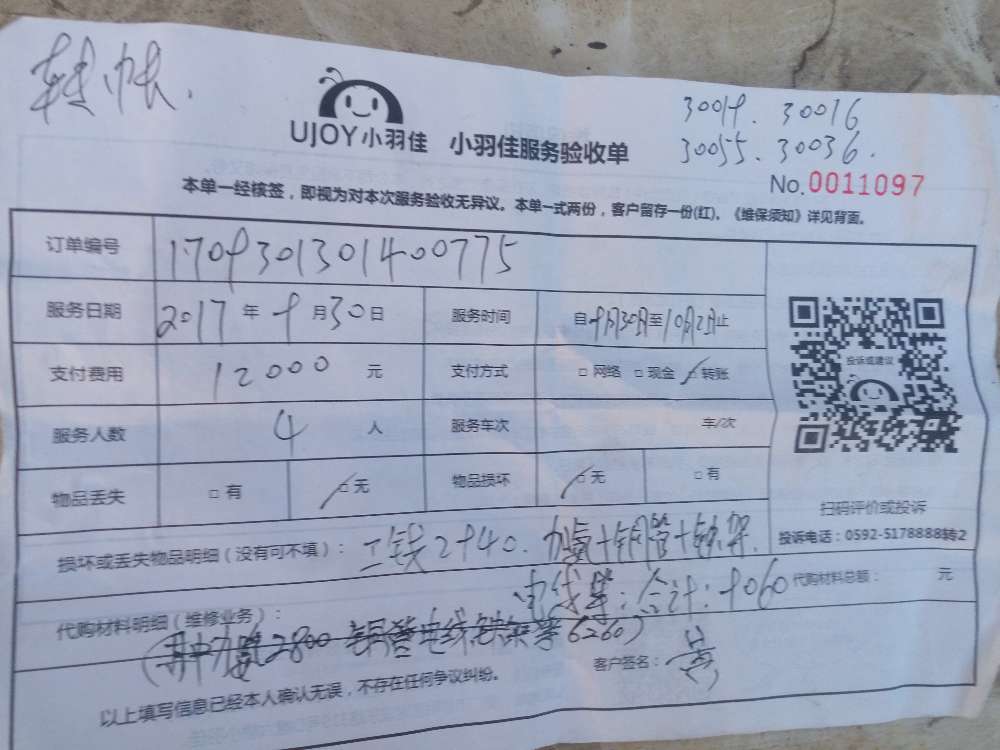 转帐.
30019. 30016
30055. 30036.
UJOY小羽佳 小羽佳服务验收单
No.0011097
本单一经核签，即视为对本次服务验收无异议。本单一式两份，客户留存一份(红)。《维保须知》详见背面。
订单编号 1709301301400775
服务日期 2017年9月30日 服务时间 自9月30日至10月2日止
支付费用 12000 元 支付方式 □网络 □现金 □转账
服务人数 4 人 服务车次 车/次
物品丢失 □有 □无 物品损坏 □无 □有
投诉或建议
扫码评价或投诉
投诉电话：0592-5178888转2
损坏或丢失物品明细（没有可不填）： 工钱2940. 加氟+铜管+铁架
电线等：合计：9060 代购材料总额： 元
代购材料明细（维修业务）：
(其中加氟2800 铜管电线铁架等6260)
客户签名：
以上填写信息已经本人确认无误，不存在任何争议纠纷。